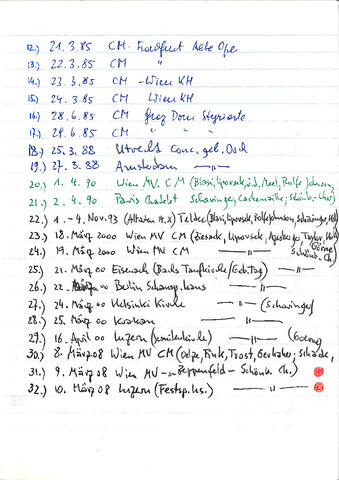 12.) 21.3.85 CM - Frankfurt Alte Oper
13.) 22.3.85 CM "
14.) 23.3.85 CM - Wien KH
15.) 24.3.85 CM Wien KH
16.) 28.6.85 CM Graz Dom Styriarte
17.) 29.6.85 CM " " "
18.) 25.3.88 Utrecht Conc. geb.
19.) 27.3.88 Amsterdam —"—
20.) 1.4.90 Wien MV. CM (Blasi, Lipovsek, v.d. Meel, Rolfe Johnson,
21.) 2.4.90 Paris Chatelet Scharinger, Cachemaille; Schönb. Chor)
22.) 1.-4. Nov. 93 Teldec (Blasi, Lipovsek, Rolfe Johnson, Scharinger,
23.) 18. März 2000 Wien MV CM (Ziesak, Lipovsek, Taylor,
24.) 19. März 2000 Wien MV CM —"— Schönb. Ch.)
25.) 21. März 00 Eisenach (Bachs Taufkirche/Geb. Tag) —"—
26.) 22. März 00 Berlin Schausp. haus —"—
27.) 24. März 00 Helsinki Kirche —"— (Scharinger)
28.) 25. März 00 Krakau —"—
29.) 16. April 00 Luzern (Jesuitenkirche) —"— (Goerne)
30.) 8. März 08 Wien MV CM (Fink, Trost, Gerhaher,
31.) 9. März 08 Wien MV -"- - Schönb. Ch.)
32.) 10. März 08 Luzern (Festsp. hs.) —"—